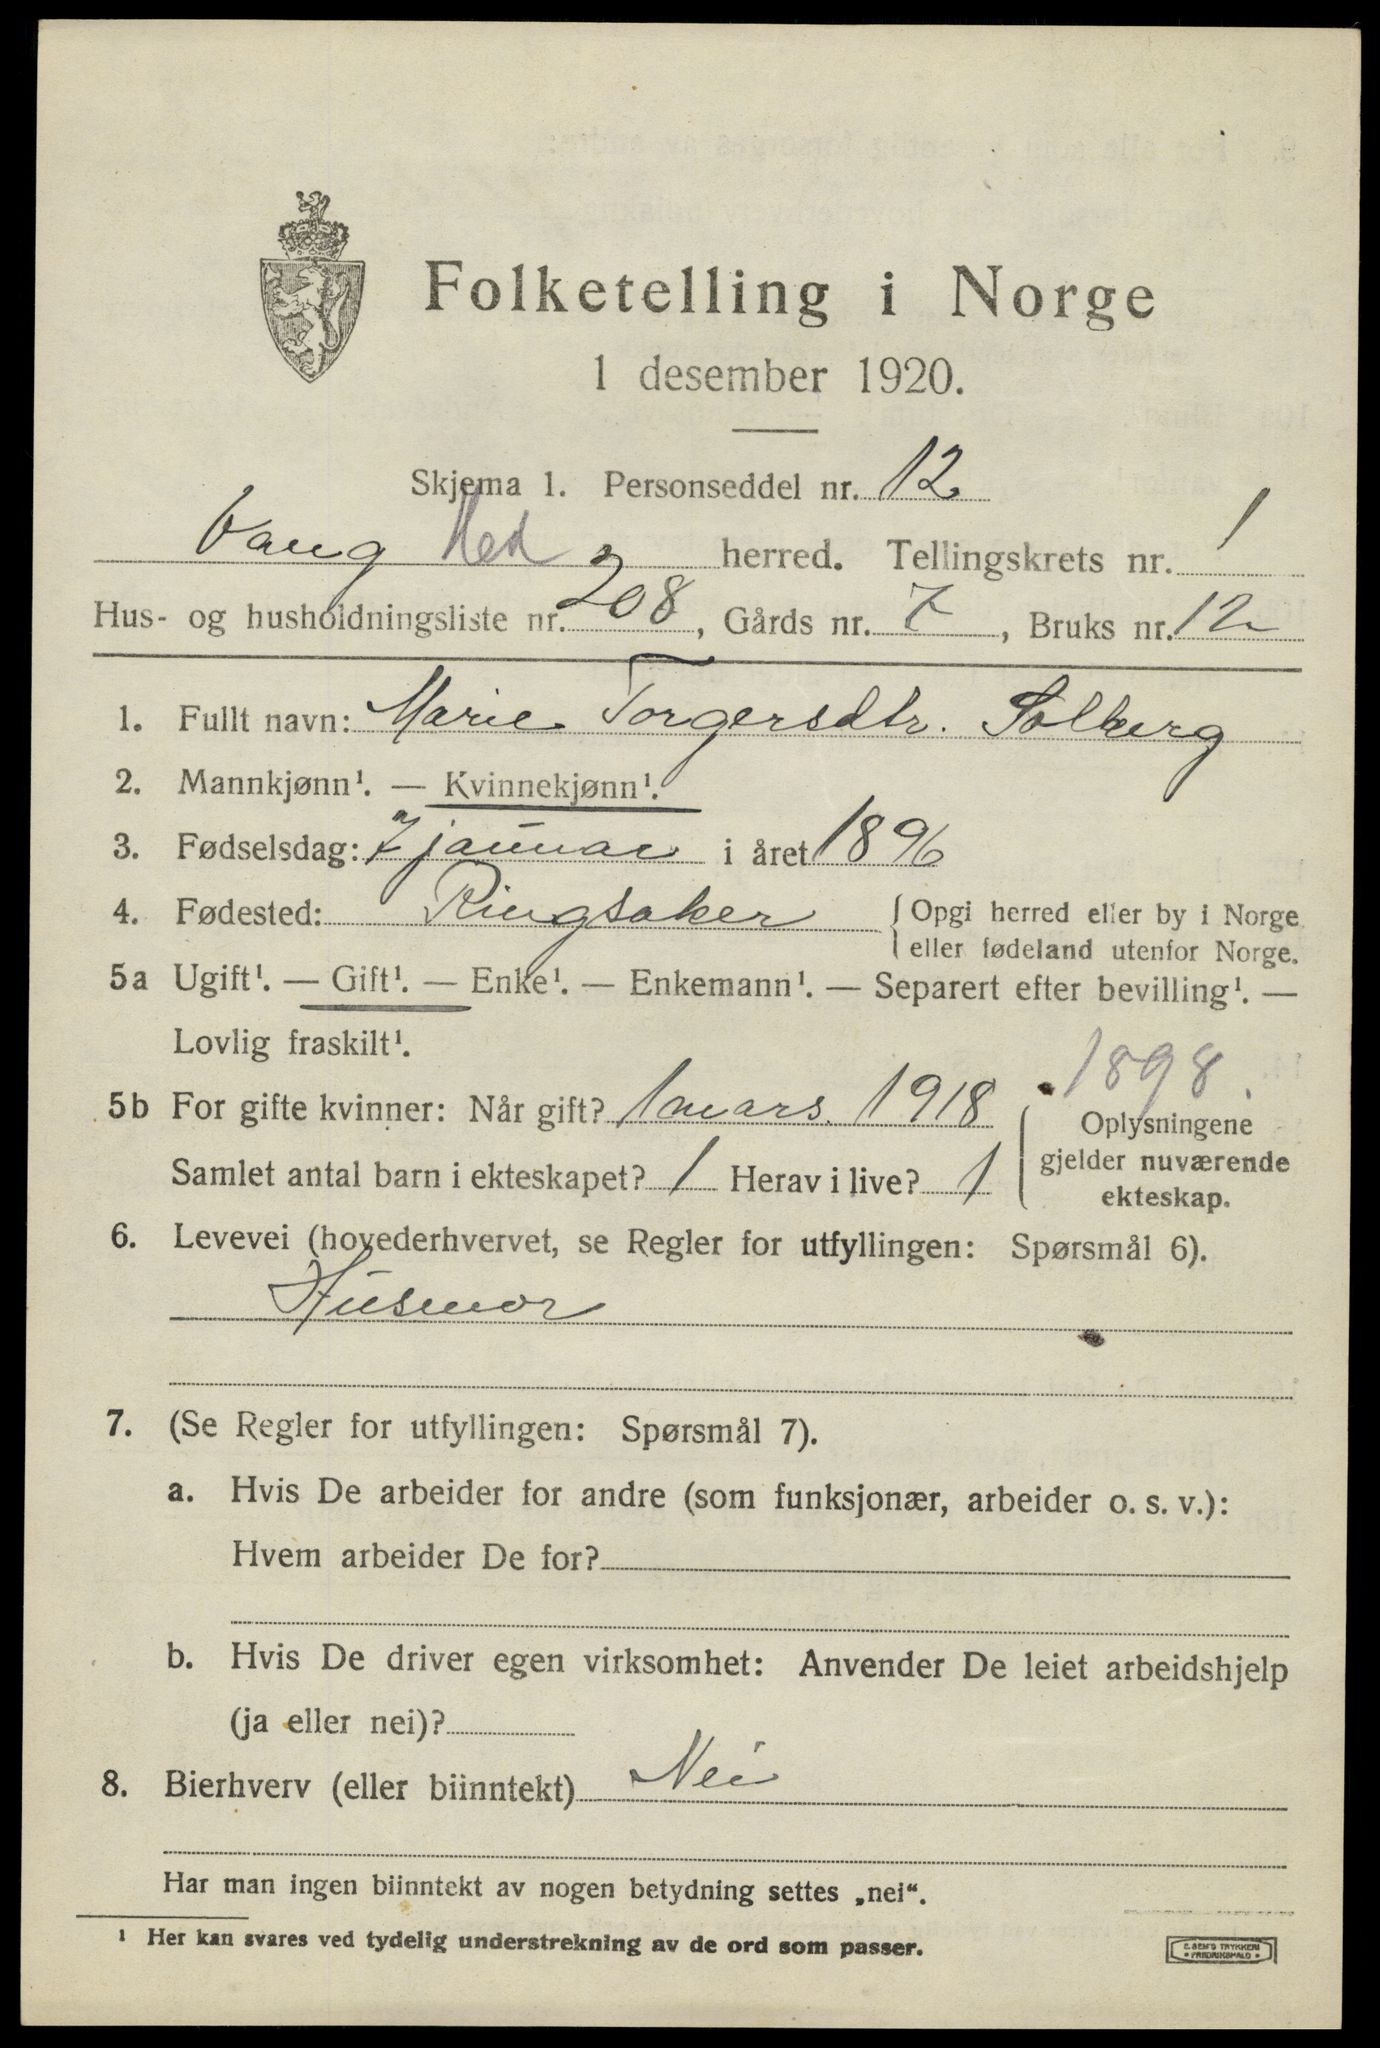 Folketelling i Norge
1 desember 1920.
Skjema 1. Personseddel nr. 12
Vang Hed herred. Tellingskrets nr. 1
Hus- og husholdningsliste nr. 208, Gårds nr. 7, Bruks nr. 12
1. Fullt navn: Marie Torgersdtr. Solberg
2. Mannkjønn¹. — Kvinnekjønn¹.
3. Fødselsdag: 7 januar i året 1896
4. Fødested: Ringsaker { Opgi herred eller by i Norge
eller fødeland utenfor Norge.
5a Ugift¹. — Gift¹. — Enke¹. — Enkemann¹. — Separert efter bevilling¹. —
Lovlig fraskilt¹.
1898
5b For gifte kvinner: Når gift? 1 mars. 1918
Samlet antal barn i ekteskapet? 1 Herav i live? 1
Oplysningene
gjelder nuværende
ekteskap.
6. Levevei (hovederhvervet, se Regler for utfyllingen: Spørsmål 6).
Husmor
7. (Se Regler for utfyllingen: Spørsmål 7).
a. Hvis De arbeider for andre (som funksjonær, arbeider o. s. v.):
Hvem arbeider De for?
b. Hvis De driver egen virksomhet: Anvender De leiet arbeidshjelp
(ja eller nei)?
8. Bierhverv (eller biinntekt) Nei
Har man ingen biinntekt av nogen betydning settes „nei“.
¹ Her kan svares ved tydelig understrekning av de ord som passer.
E. SEM'S TRYKKERI
FREDRIKSHALD